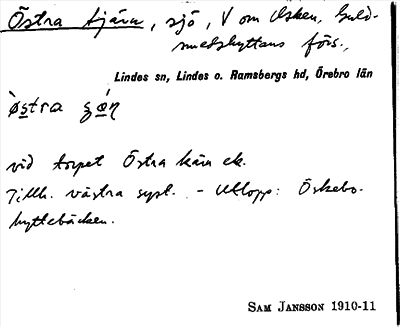 Östra tjärn, sjö, V om Usken, Guld-
smedshyttans förs.,
Lindes sn, Lindes o. Ramsbergs hd, Örebro län
vid torpet Östra kärn ek.
Tillh. västra syst. - Utlopp: Öskebo-
hyttebäcken.
SAM JANSSON 1910-11